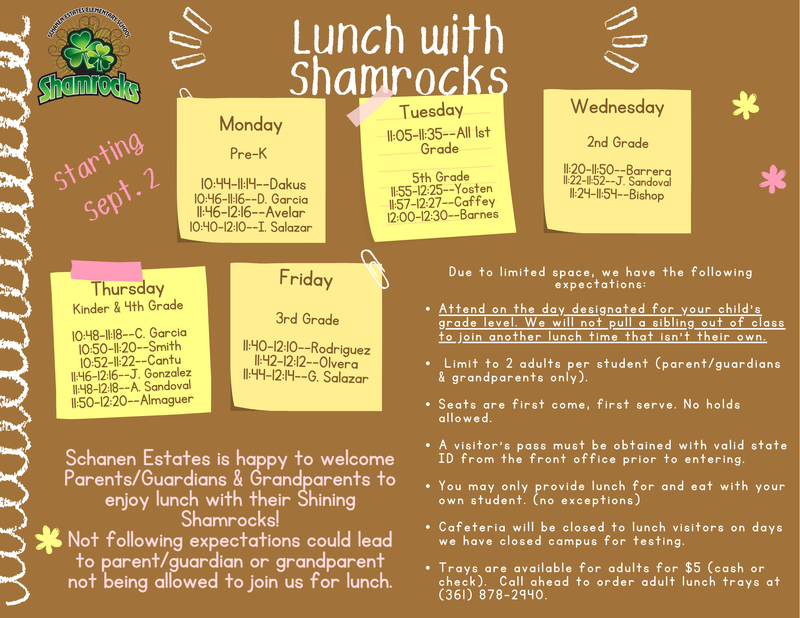 SCHANEN ESTATES ELEMENTARY SCHOOL
Shamrocks
Lunch with
Shamrocks
Starting
Sept. 2
Monday
Pre-K
10:44-11:14--Dakus
10:46-11:16--D. Garcia
11:46-12:16--Avelar
10:40-12:10--I. Salazar
Tuesday
11:05-11:35--All 1st
Grade
5th Grade
11:55-12:25--Yosten
11:57-12:27--Caffey
12:00-12:30--Barnes
Wednesday
2nd Grade
11:20-11:50--Barrera
11:22-11:52--J. Sandoval
11:24-11:54--Bishop
Thursday
Kinder & 4th Grade
10:48-11:18--C. Garcia
10:50-11:20--Smith
10:52-11:22--Cantu
11:46-12:16--J. Gonzalez
11:48-12:18--A. Sandoval
11:50-12:20--Almaguer
Friday
3rd Grade
11:40-12:10--Rodriguez
11:42-12:12--Olvera
11:44-12:14--G. Salazar
Schanen Estates is happy to welcome
Parents/Guardians & Grandparents to
enjoy lunch with their Shining
Shamrocks!
Not following expectations could lead
to parent/guardian or grandparent
not being allowed to join us for lunch.
Due to limited space, we have the following
expectations:
• Attend on the day designated for your child's
grade level. We will not pull a sibling out of class
to join another lunch time that isn't their own.
• Limit to 2 adults per student (parent/guardians
& grandparents only).
• Seats are first come, first serve. No holds
allowed.
• A visitor's pass must be obtained with valid state
ID from the front office prior to entering.
• You may only provide lunch for and eat with your
own student. (no exceptions)
• Cafeteria will be closed to lunch visitors on days
we have closed campus for testing.
• Trays are available for adults for $5 (cash or
check). Call ahead to order adult lunch trays at
(361) 878-2940.